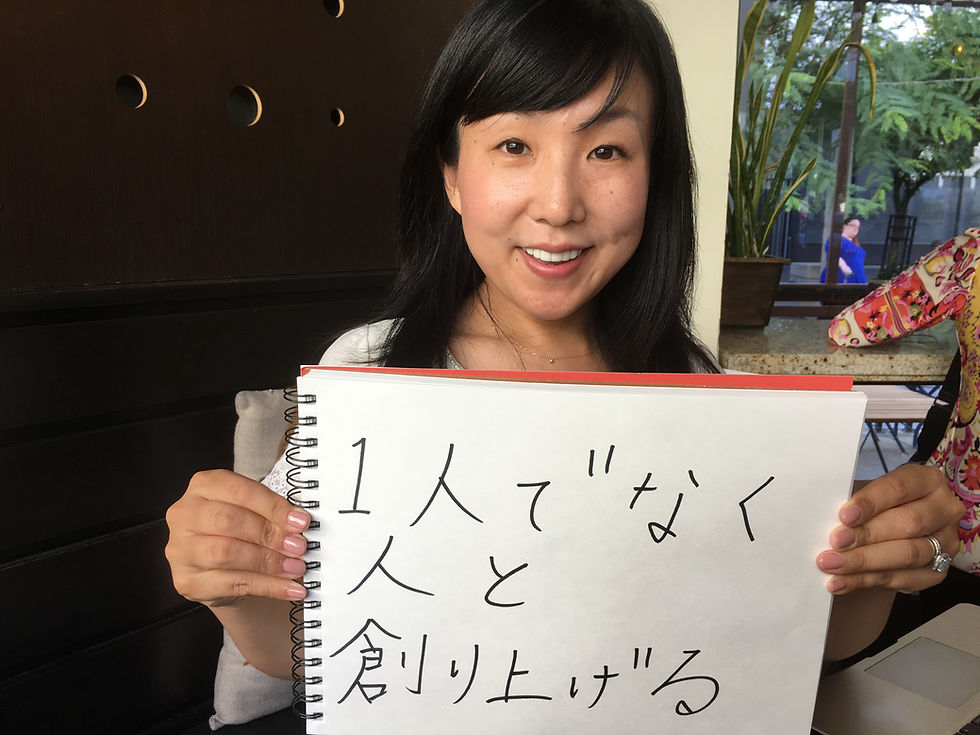 1人でなく
人と
創り上げる